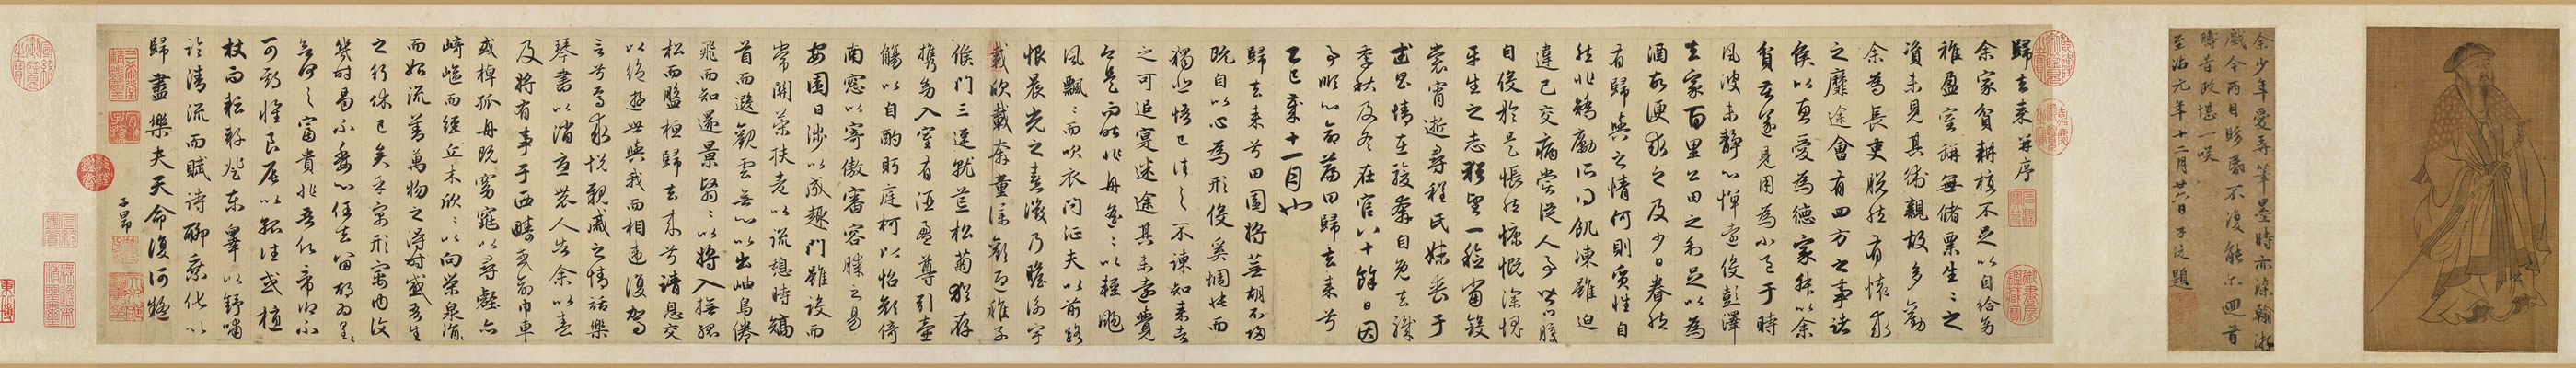 余少年愛弄筆墨時亦染翰游
戲今兩目眵昏不復能尔廻首
時昔政堪一咲
至治元年十二月廿六日子昂題
歸去來并序
余家貧耕植不足以自給幼
稚盈室缾無儲粟生生之
資未見其術親故多勸
余為長吏脫然有懷求
之靡途會有四方之事諸
侯以惠愛為德家叔以余
貧苦遂見用為小邑于時
風波未靜心憚遠役彭澤
去家百里公田之利足以為
酒故便求之及少日眷然
有歸與之情何則質性自
然非矯勵所得飢凍雖迫
違己交病嘗從人事皆口腹
自役於是悵然慷慨深愧
平生之志猶望一稔當斂
裳宵逝尋程氏妹喪于
武昌情在駿奔自免去職
季秋及冬在官八十餘日因
事順心命篇曰歸去來兮
乙巳歲十一月也
歸去來兮田園將蕪胡不歸
既自以心為形役奚惆悵而
獨悲悟已往之不諫知來者
之可追寔迷途其未遠覺
今是而昨非舟遙遙以輕颺
風飄飄而吹衣問征夫以前路
恨晨光之熹微乃瞻衡宇
載欣載奔童僕歡迎稚子
候門三逕就荒松菊猶存
攜幼入室有酒盈尊引壺
觴以自酌眄庭柯以怡顏倚
南窗以寄傲審容膝之易
安園日涉以成趣門雖設而
常關策扶老以流憩時矯
首而遐觀雲無心以出岫鳥倦
飛而知還景翳翳以將入撫孤
松而盤桓歸去來兮請息交
以絕遊世與我而相違復駕
言兮焉求悅親戚之情話樂
琴書以消憂農人告余以春
及將有事于西疇或命巾車
或棹孤舟既窈窕以尋壑亦
崎嶇而經丘木欣欣以向榮泉涓涓
而始流善萬物之得時感吾生
之行休已矣乎寓形宇內復
幾時曷不委心任去留胡為遑遑
欲何之富貴非吾願帝鄉不
可期懷良辰以孤往或植
杖而耘耔登東皋以舒嘯
臨清流而賦詩聊乘化以
歸盡樂夫天命復何疑
子昂